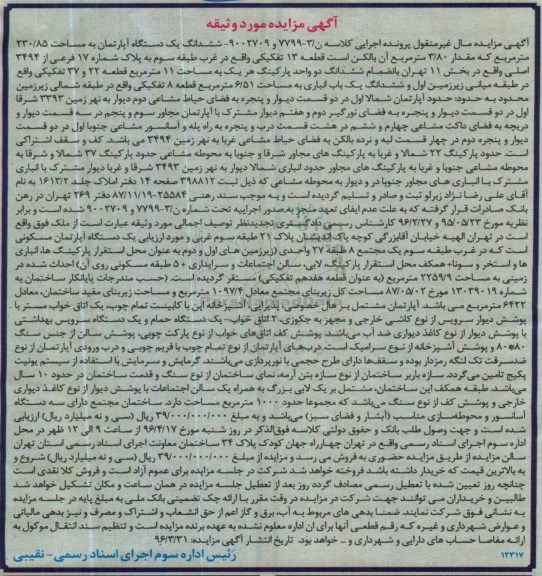 آگهی مزایده مورد وثیقه
آگهی مزایده مال غیرمنقول پرونده اجرایی کلاسه ن/۷۷۹۹-۳ و ۹۰۰۲۷۰۹- ششدانگ یک دستگاه آپارتمان به مساحت ۲۳۰/۸۵
مترمربع که مقدار ۳/۸۰ مترمربع آن بالکن است قطعه ۱۳ تفکیکی واقع در غرب طبقه سوم به پلاک شماره ۱۷ فرعی از ۳۴۹۴
اصلی واقع در بخش ۱۱ تهران بانضمام ششدانگ دو واحد پارکینگ هر یک به مساحت ۱۱ مترمربع قطعه ۲۲ و ۳۷ تفکیکی واقع
در طبقه میانی زیرزمین اول و ششدانگ یک باب انباری به مساحت ۶/۵۱ مترمربع قطعه ۸ تفکیکی واقع در طبقه شمالی زیرزمین
محدود به حدود: حدود آپارتمان شمالا اول در دو قسمت دیوار و پنجره به فضای حیاط مشاعی دوم دیوار به نهر زمین ۳۳۹۳ شرقا
اول در دو قسمت دیوار و پنجره به فضای نورگیر دوم و هفتم دیوار مشترک با آپارتمان مجاور سوم و پنجم در سه قسمت دیوار و
دریچه به فضای داکت مشاعی چهارم و ششم در هشت قسمت درب و پنجره به راه پله و آسانسور مشاعی جنوبا اول در دو قسمت
دیوار و پنجره دوم در چهار قسمت لبه و نرده بالکن به فضای حیاط مشاعی غربا به نهر زمین ۳۴۹۴ می باشد. کف و سقف اشتراکی
است. حدود پارکینگ ۲۲ شمالا و غربا به پارکینگ های مجاور شرقا و جنوبا به محوطه مشاعی حدود پارکینگ ۳۷ شمالا و شرقا به
محوطه مشاعی جنوبا و غربا به پارکینگ های مجاور حدود انباری شمالا دیوار به نهر زمین ۳۴۹۳ شرقا و غربا دیوار مشترک با انباری
مشترک با انباری های مجاور جنوبا در و دیوار به محوطه مشاعی که ذیل ثبت ۳۹۸۸۱۲ صفحه ۱۴ دفتر املاک جلد ۱۶۱۳/۲ به نام
آقای علی رضانژاد زیرلو ثبت و صادر و تسلیم گردیده است و به موجب سند رهنی ۲۵۵۸۴-۸۷/۱۱/۱۹ دفتر ۲۶۹ تهران در رهن
بانک صادرات قرار گرفته که به علت عدم ایفای تعهد منجر به صدور اجراییه تحت شماره ن/۷۷۹۹-۳ و ۹۰۰۲۷۰۹ شده است و برابر
نظریه مورخ ۹۵/۰۵/۲۳ و ۹۶/۲/۲۷ کارشناس رسمی دادگستری تجدیدنظر توصیف اجمالی مورد وثیقه عبارت است از ملک فوق واقع
است در تهران الهیه خیابان آقابزرگی کوچه پاک اندیشان پلاک ۲۱ طبقه سوم غربی و مورد ارزیابی یک دستگاه آپارتمان مسکونی
است که در غرب طبقه سوم یک مجتمع ۸ طبقه ۲۷ واحدی (زیرزمین های اول و دوم به عنوان محل استقرار پارکینگ ها، انباری
ها و استخر و سونا، همکف محل استقرار پارکینگ، لابی، سالن اجتماعات و سرایداری + ۵ طبقه مسکونی روی آن) احداث شده در
زمینی به مساحت ۲۲۵۹/۹ مترمربع (به عنوان قطعه هفدهم تفکیکی) مستقر گردیده است. (حسب مندرجات پایانکار ساختمان به
شماره ۱۳۰۳۹۰۱۹ مورخ ۸۷/۰۵/۰۲ مساحت کل زیربنای مجتمع معادل ۱۰۹۷/۴ مترمربع و مساحت زیربنای مفید ساختمان، معادل
۶۴۲۲ مترمربع می باشد). آپارتمان مشتمل بر هال خصوصی، پذیرایی، آشپزخانه اپن با کابینت تمام چوب، یک اتاق خواب مستر با
پوشش دیوار سرویس از نوع کاشی خارجی و مجهز به جکوزی، ۲ اتاق خواب- یک دستگاه حمام و یک دستگاه سرویس بهداشتی
با پوشش دیوار از نوع کاغذ دیواری ضد آب می‌باشد. پوشش کف اتاق‌های خواب از نوع پارکت چوبی، پوشش سالن از جنس سنگ
۸۰×۸۰ و پوشش آشپزخانه از نوع سرامیک است. درب‌های آپارتمان از نوع تمام چوب با فریم چوبی و درب ورودی آپارتمان از نوع
ضدسرقت تک لنگه رمزدار بوده و سقف‌ها دارای طرح حجمی با نورپردازی می‌باشند. گرمایش و سرمایش با استفاده از سیستم یونیت
پکیج تامین می‌گردد. سازه باربر ساختمان از نوع سازه بتن آرمه، نمای ساختمان از نوع سنگ و قدمت ساختمان در حدود ۱۰ سال
می‌باشد. طبقه همکف این ساختمان، مشتمل بر یک لابی بزرگ به همراه یک سالن اجتماعات با پوشش دیوار از نوع کاغذ دیواری
خارجی و پوشش کف از نوع سنگ می‌باشد که مجموعا حدود ۱۰۰۰ مترمربع مساحت دارد. ساختمان مجتمع دارای سه دستگاه
آسانسور و محوطه‌سازی مناسب (آبشار و فضای سبز) می‌باشد و به مبلغ ۳۹/۰۰۰/۰۰۰/۰۰۰ ریال (سی و نه میلیارد ریال) ارزیابی
شده است و جهت وصول طلب بانک و حقوق دولتی کلاسه فوق‌الذکر در روز شنبه مورخ ۹۶/۴/۱۷ از ساعت ۹ الی ۱۲ ظهر در محل
اداره سوم اجرای اسناد رسمی واقع در تهران چهارراه جهان کودک پلاک ۳۴ ساختمان معاونت اجرای اسناد رسمی استان تهران
سالن مزایده از طریق مزایده حضوری به فروش می رسد و مزایده از مبلغ ۳۹/۰۰۰/۰۰۰/۰۰۰ ریال (سی و نه میلیارد ریال) شروع و
به بالاترین قیمت که خریدار داشته باشد فروخته خواهد شد شرکت در جلسه مزایده برای عموم آزاد است و فروش کلا نقدی است
چنانچه روز تعیین شده با تعطیل رسمی مصادف گردد روز بعد از تعطیل جلسه مزایده در همان ساعت و مکان تشکیل خواهد شد
طالبین و خریداران می توانند جهت شرکت در مزایده در وقت مقرر با ارائه چک تضمینی بانک ملی به مبلغ پایه در جلسه مزایده
به نشانی فوق شرکت نمایند. ضمنا بدهی های مربوط به آب، برق و گاز اعم از حق انشعاب و اشتراک و مصرف و نیز بدهی مالیاتی
و عوارض شهرداری و غیره که رقم قطعی آنها برای ان اداره معلوم نشده به عهده برنده مزایده است و تنظیم سند انتقال موکول به
ارائه مفاصا حساب های دارایی و شهرداری و .. خواهد بود. تاریخ انتشار آگهی مزایده: ۹۶/۳/۳۱
رئیس اداره سوم اجرای اسناد رسمی- نقیبی
۱۲۳۱۷